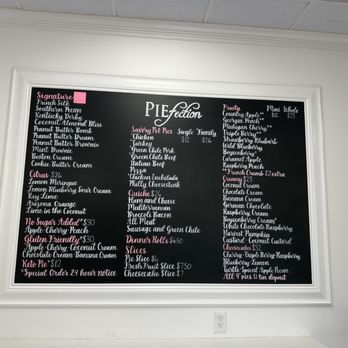 PIEfection
Signature
French Silk
Southern Pecan
Kentucky Derby
Coconut Almond Bliss
Peanut Butter Bomb
Peanut Butter Dream
Peanut Butter Brownie
Mint Brownie
Boston Cream
Cookie Butter Cream
Citrus $24
Lemon Meringue
Lemon Blueberry Sour Cream
Key Lime
Arizona Orange
Lime in the Coconut
No Sugar Added* $30
Apple-Cherry-Peach
Gluten Friendly* $30
Apple-Cherry-Coconut Cream
Chocolate Cream-Banana Cream
Keto Pie* $12
*Special Order 24 hour notice
Savory Pot Pies Single Family
Chicken $12 $26
Turkey
Green Chile Pork
Green Chile Beef
Italian Beef
Pizza
Chicken Enchilada
Philly Cheesesteak
Quiche $24
Ham and Cheese
Mediterranean
Broccoli Bacon
All Meat
Sausage and Green Chile
Dinner Rolls $6.50
Slices
Pie Slice $6
Fresh Fruit Slice $7.50
Cheesecake Slice $7
Fruity Mini Whole
Country Apple**
Georgia Peach**
Michigan Cherry**
Triple Berry**
Strawberry Rhubarb
Wild Blueberry
Boysenberry
Caramel Apple
Raspberry Peach
**French Crumb $2 extra
Creamy $23
Coconut Cream
Chocolate Cream
Banana Cream
German Chocolate
Raspberry Cream
Boysenberry Cream
White Chocolate Raspberry
Harvest Pumpkin
Custard-Coconut Custard
Cheesecakes $32
Cherry-Triple Berry-Raspberry
Blueberry-Lemon
Turtle-Spiced Apple Pecan
All 9" pies $1 tin deposit